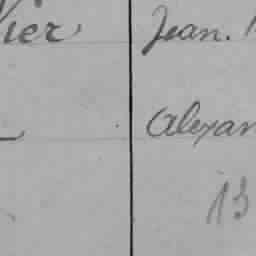 vier Jean.
Alexan
13